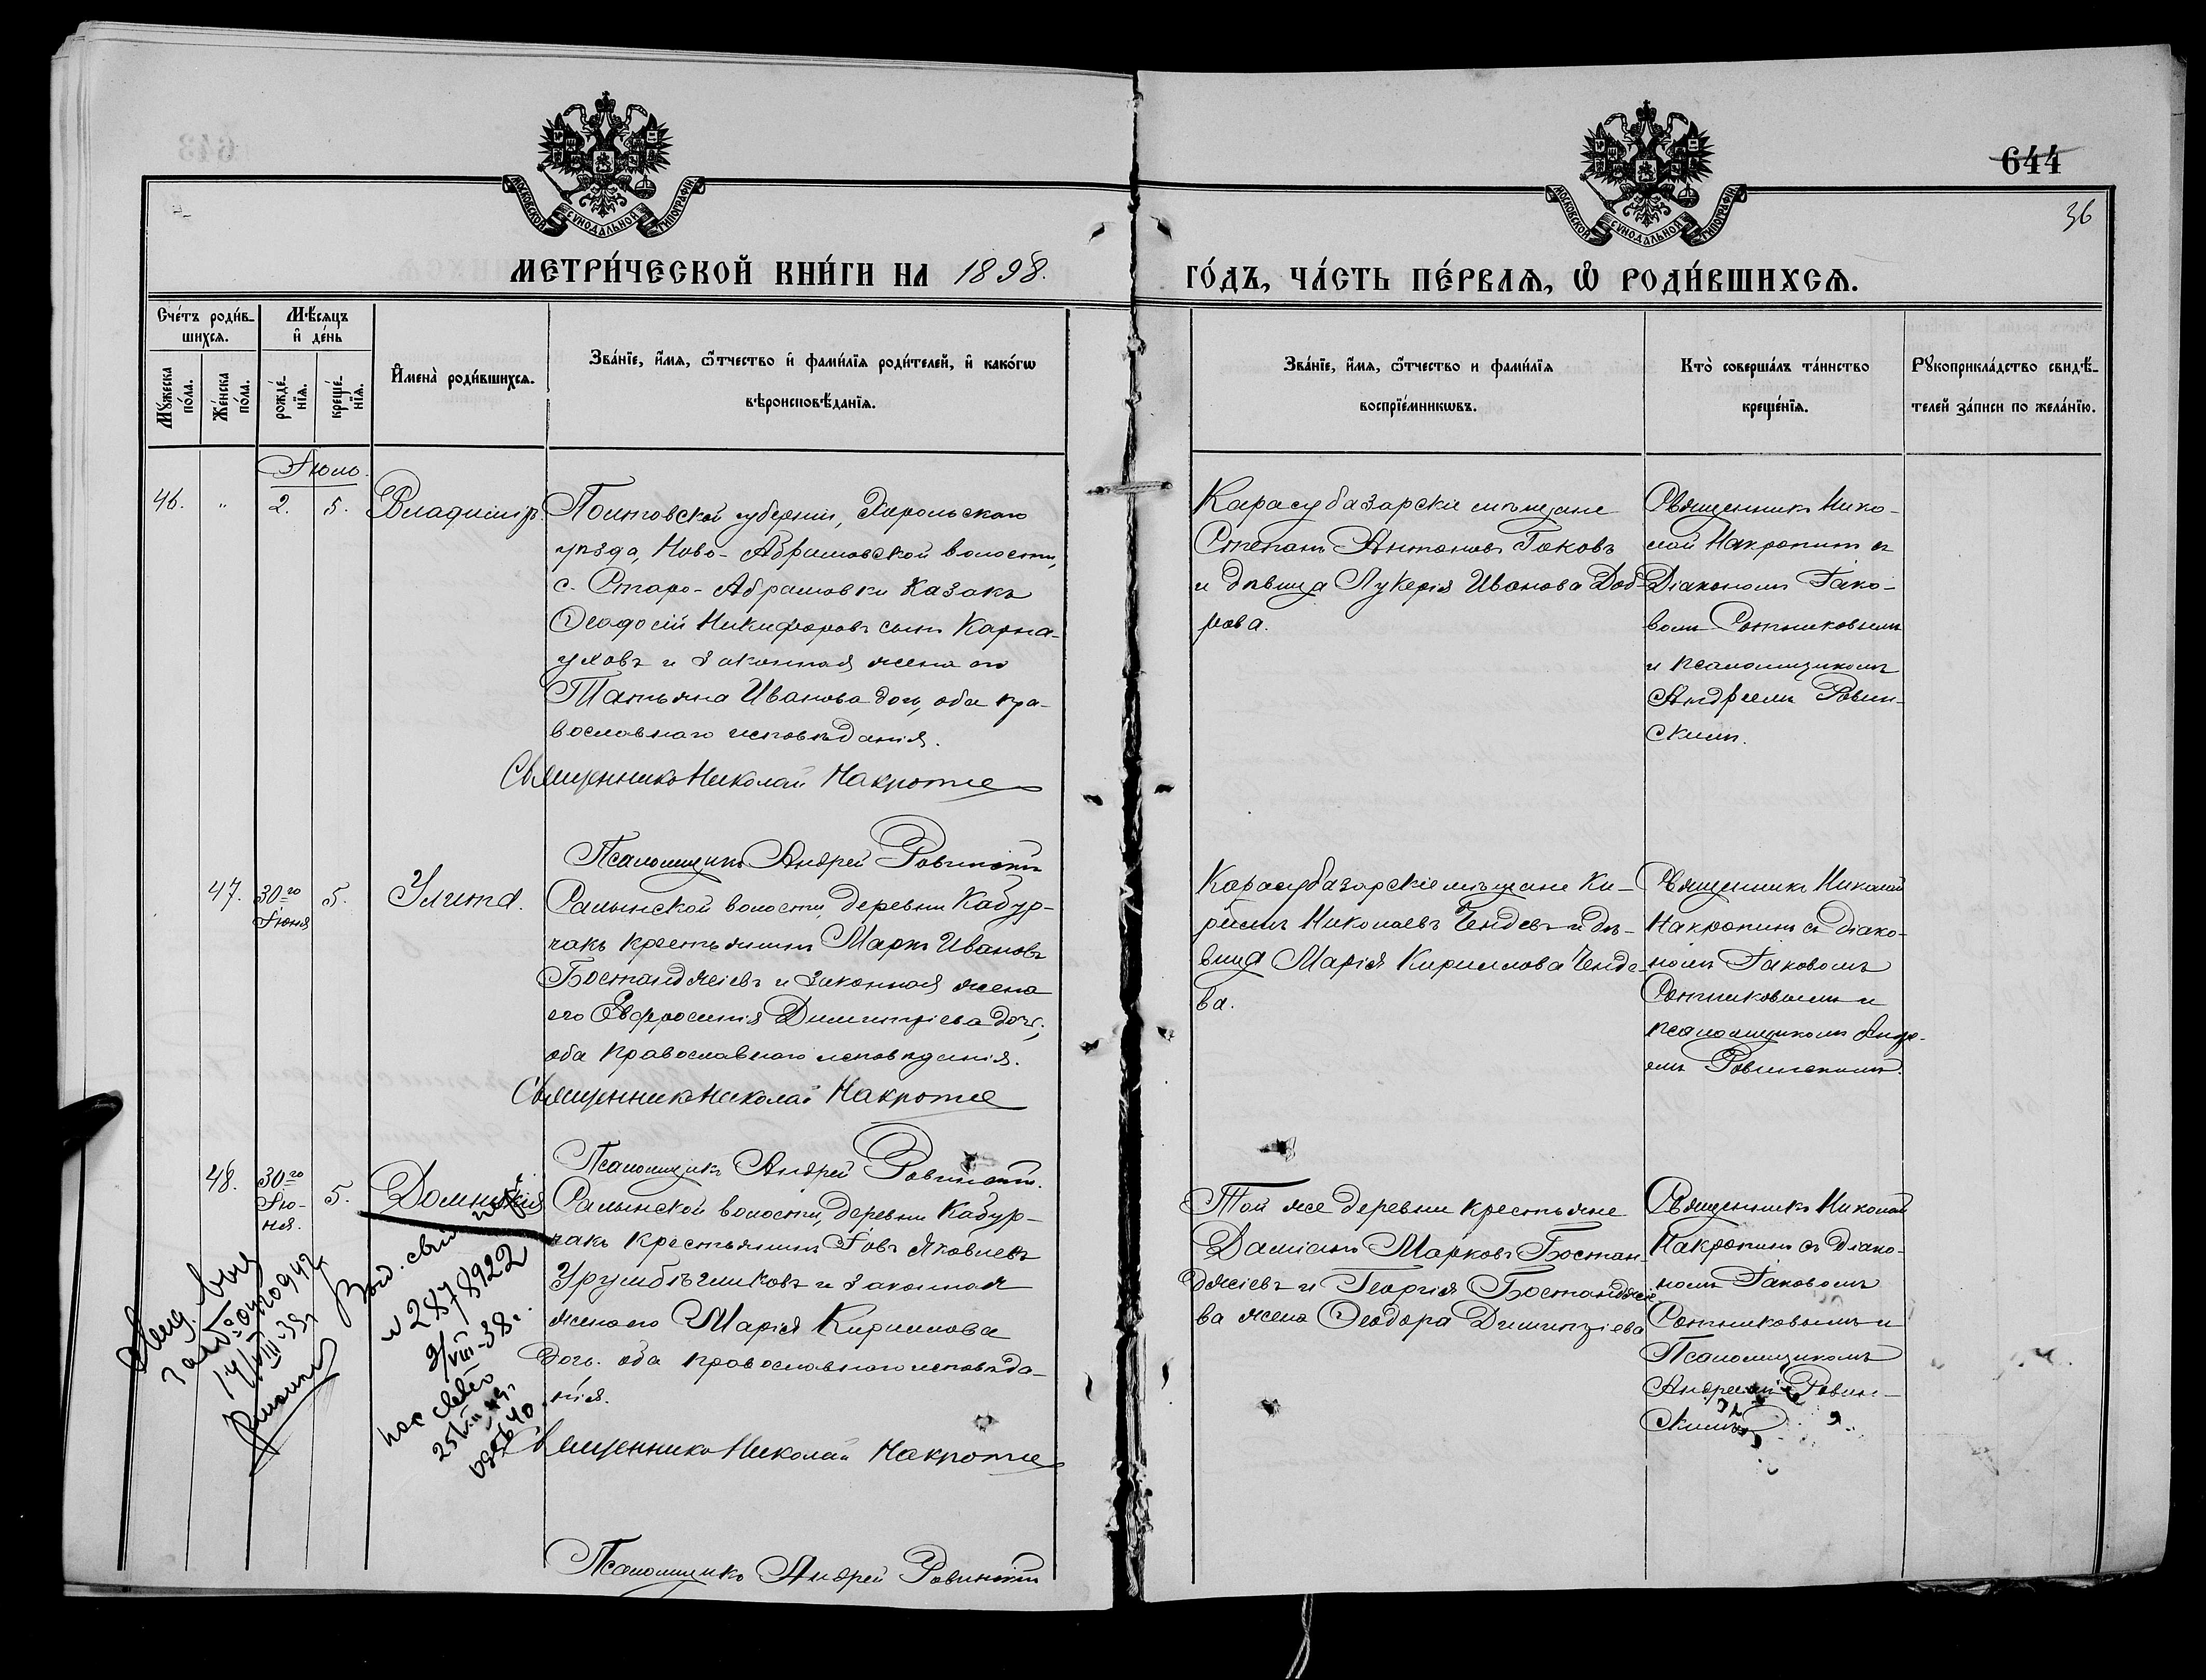 644
36
МОСКОВСКОЙ СѴНОДАЛЬНОЙ ТИПОГРАФІИ
МОСКОВСКОЙ СѴНОДАЛЬНОЙ ТИПОГРАФІИ
МЕТРИ́ЧЕСКОЙ КНИ́ГИ НА 1898.
ГО́ДЪ, ЧА́СТЬ ПЕ́РВАѦ, Ѽ РОДИ́ВШИХСѦ.
Сче́тъ роди́в-
шихсѧ.
Мѣ́сѧцъ
и҆ де́нь
Мꙋ́жеска
по́ла.
Же́нска
по́ла.
рожде́-
нїѧ.
креще́-
нїѧ.
И҆мена̀ роди́вшихсѧ.
Зва́нїе, и҆́мѧ, ѻ҆́тчество и҆ фами́лїѧ роди́телей, и҆ како́гѡ
вѣроисповѣ́данїѧ.
Зва́нїе, и҆́мѧ, ѻ҆́тчество и фами́лїѧ
воспрїе́мникѡвъ.
Кто̀ соверша́лъ та́инство
креще́нїѧ.
Рꙋкоприкла́дство свидѣ́-
телей за́писи по жела́нїю.
Іюль.
46.
"
2.
5.
Владиміръ.
Полтовской губерніи, Хорольскаго
уѣзда, Ново-Абрамовской волости,
с. Старо-Абрамовки Казакъ
Ѳеодосій Никифоровъ сынъ Карна-
уховъ и законная жена его
Татьяна Иванова дочь, оба пра-
вославнаго исповѣданія.
Священникъ Николай Накропинъ
Псаломщикъ Андрей Ровинскій
Карасубазарскіе мѣщане
Степанъ Антоновъ Гоковъ
и дѣвица Лукерія Иванова Доб-
рова.
Священникъ Нико-
лай Накропинъ съ
Діакономъ Іако-
вомъ Сотниковымъ
и псаломщикомъ
Андреемъ Ровин-
скимъ.
47.
30го
Іюня
5.
Улита.
Салынской волости, деревни Кабур-
чакъ крестьянинъ Маркъ Ивановъ
Бостанджіевъ и законная жена
его Евфросинія Димитріева дочь,
оба православнаго исповѣданія.
Священникъ Николай Накропинъ
Псаломщикъ Андрей Ровинскій.
Карасубазарскіе мѣщане Ки-
риллъ Николаевъ Чендевъ и дѣ-
вица Марія Кириллова Ченде-
ва.
Священникъ Николай
Накропинъ съ діако-
номъ Іаковомъ
Сотниковымъ и
псаломщикомъ Андре-
емъ Ровинскимъ.
48.
30го
Ію-
ня.
5.
Домникія
Салынской волости, деревни Кабур-
чакъ крестьянинъ Іовъ Яковлевъ
и законная
жена его Марія Кириллова
дочь. оба православнаго исповѣда-
нія.
Священникъ Николай Накропинъ
Псаломщикъ Андрей Ровинскій
Той же деревни крестьяне
Даміанъ Марковъ Бостан-
джіевъ и Георгія Бостанджіе-
ва жена Ѳеодора Димитріева
Священникъ Николай
Накропинъ съ діако-
номъ Іаковомъ
Сотниковымъ и
Псаломщикомъ
Андреемъ Ровин-
скимъ
14/VIII-39г
Выд. свид.
N 2878922
9/VIII-38г.